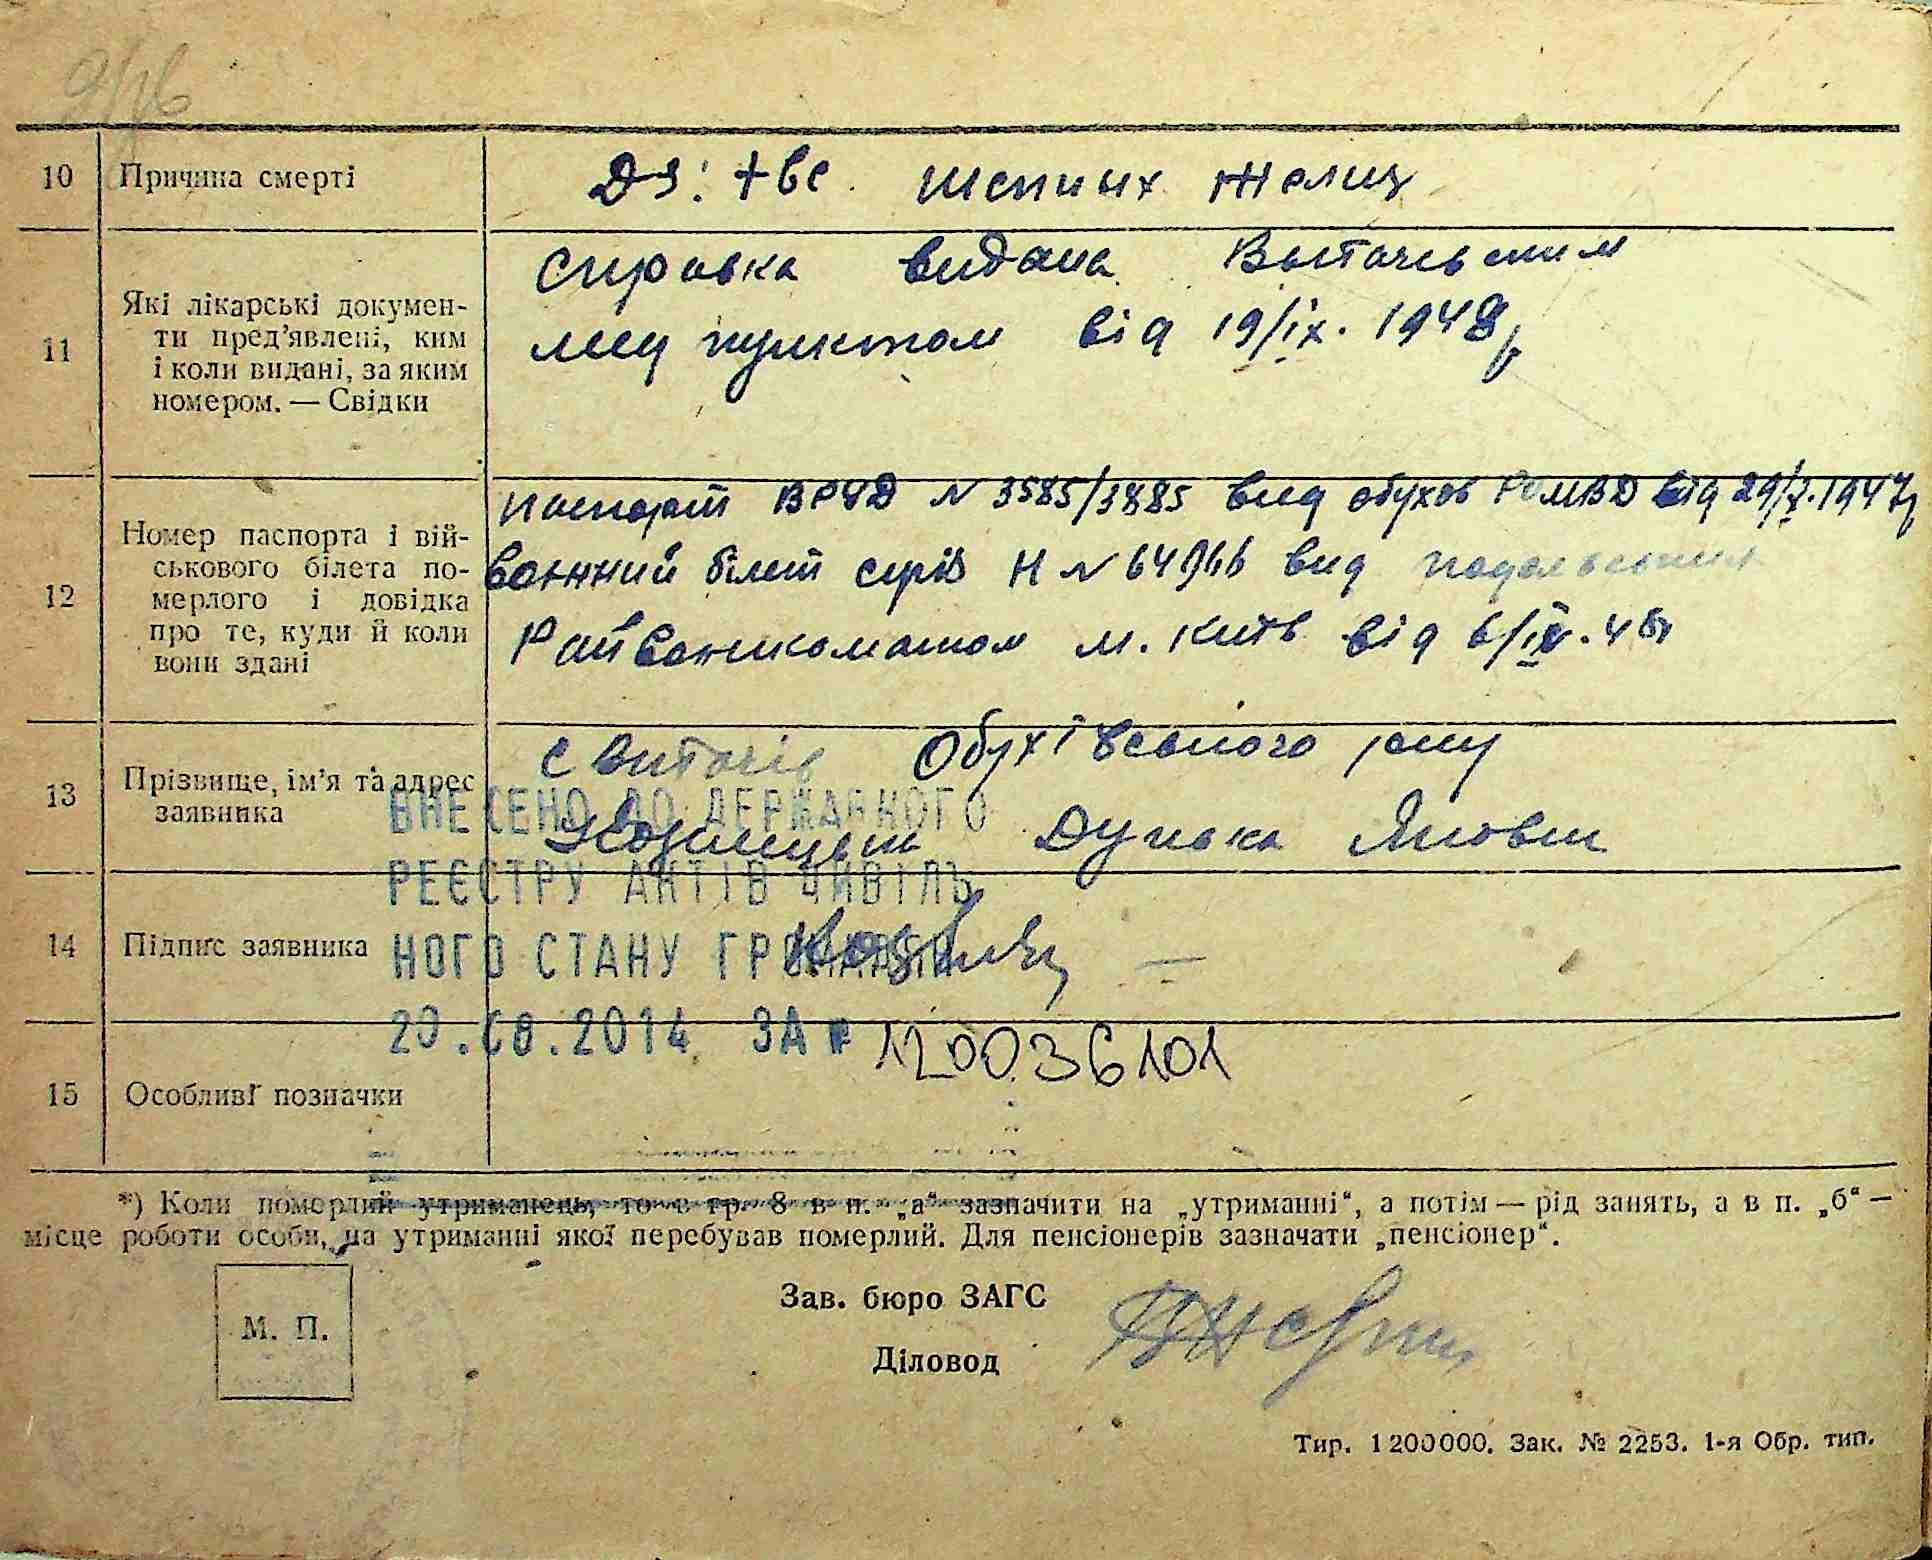 9/16
10 Причина смерті
Дз: tbc шейных желез
11 Які лікарські докумен-
ти пред'явлені, ким
і коли видані, за яким
номером. — Свідки
Справка видана
мед пунктом від 19/IX. 1948р
12 Номер паспорта і вій-
ськового білета по-
мерлого і довідка
про те, куди й коли
вони здані
Паспорт N 3585/3885 вид Обухов РОМВД від 29/X.1947р
военний білет серія Н N 64966 вид подольским
Райвоенкоматом м. Київ від 6/IX.
13 Прізвище, ім'я та адрес
заявника
с Витачів Обухівського р-ну
Дунька Яковл
14 Підпис заявника
ВНЕСЕНО ДО ДЕРЖАВНОГО
РЕЄСТРУ АКТІВ ЦИВІЛЬ
НОГО СТАНУ ГРОМАДЯН
20.08.2014 ЗА № 120036101
15 Особливі позначки
*) Коли померлий утриманець, то в гр. 8 в п. „а“ зазначити на „утриманні“, а потім — рід занять, а в п. „б“ —
місце роботи особи, на утриманні якої перебував померлий. Для пенсіонерів зазначати „пенсіонер“.
М. П.
Зав. бюро ЗАГС
Діловод
Тир. 1200000. Зак. № 2253. 1-я Обр. тип.